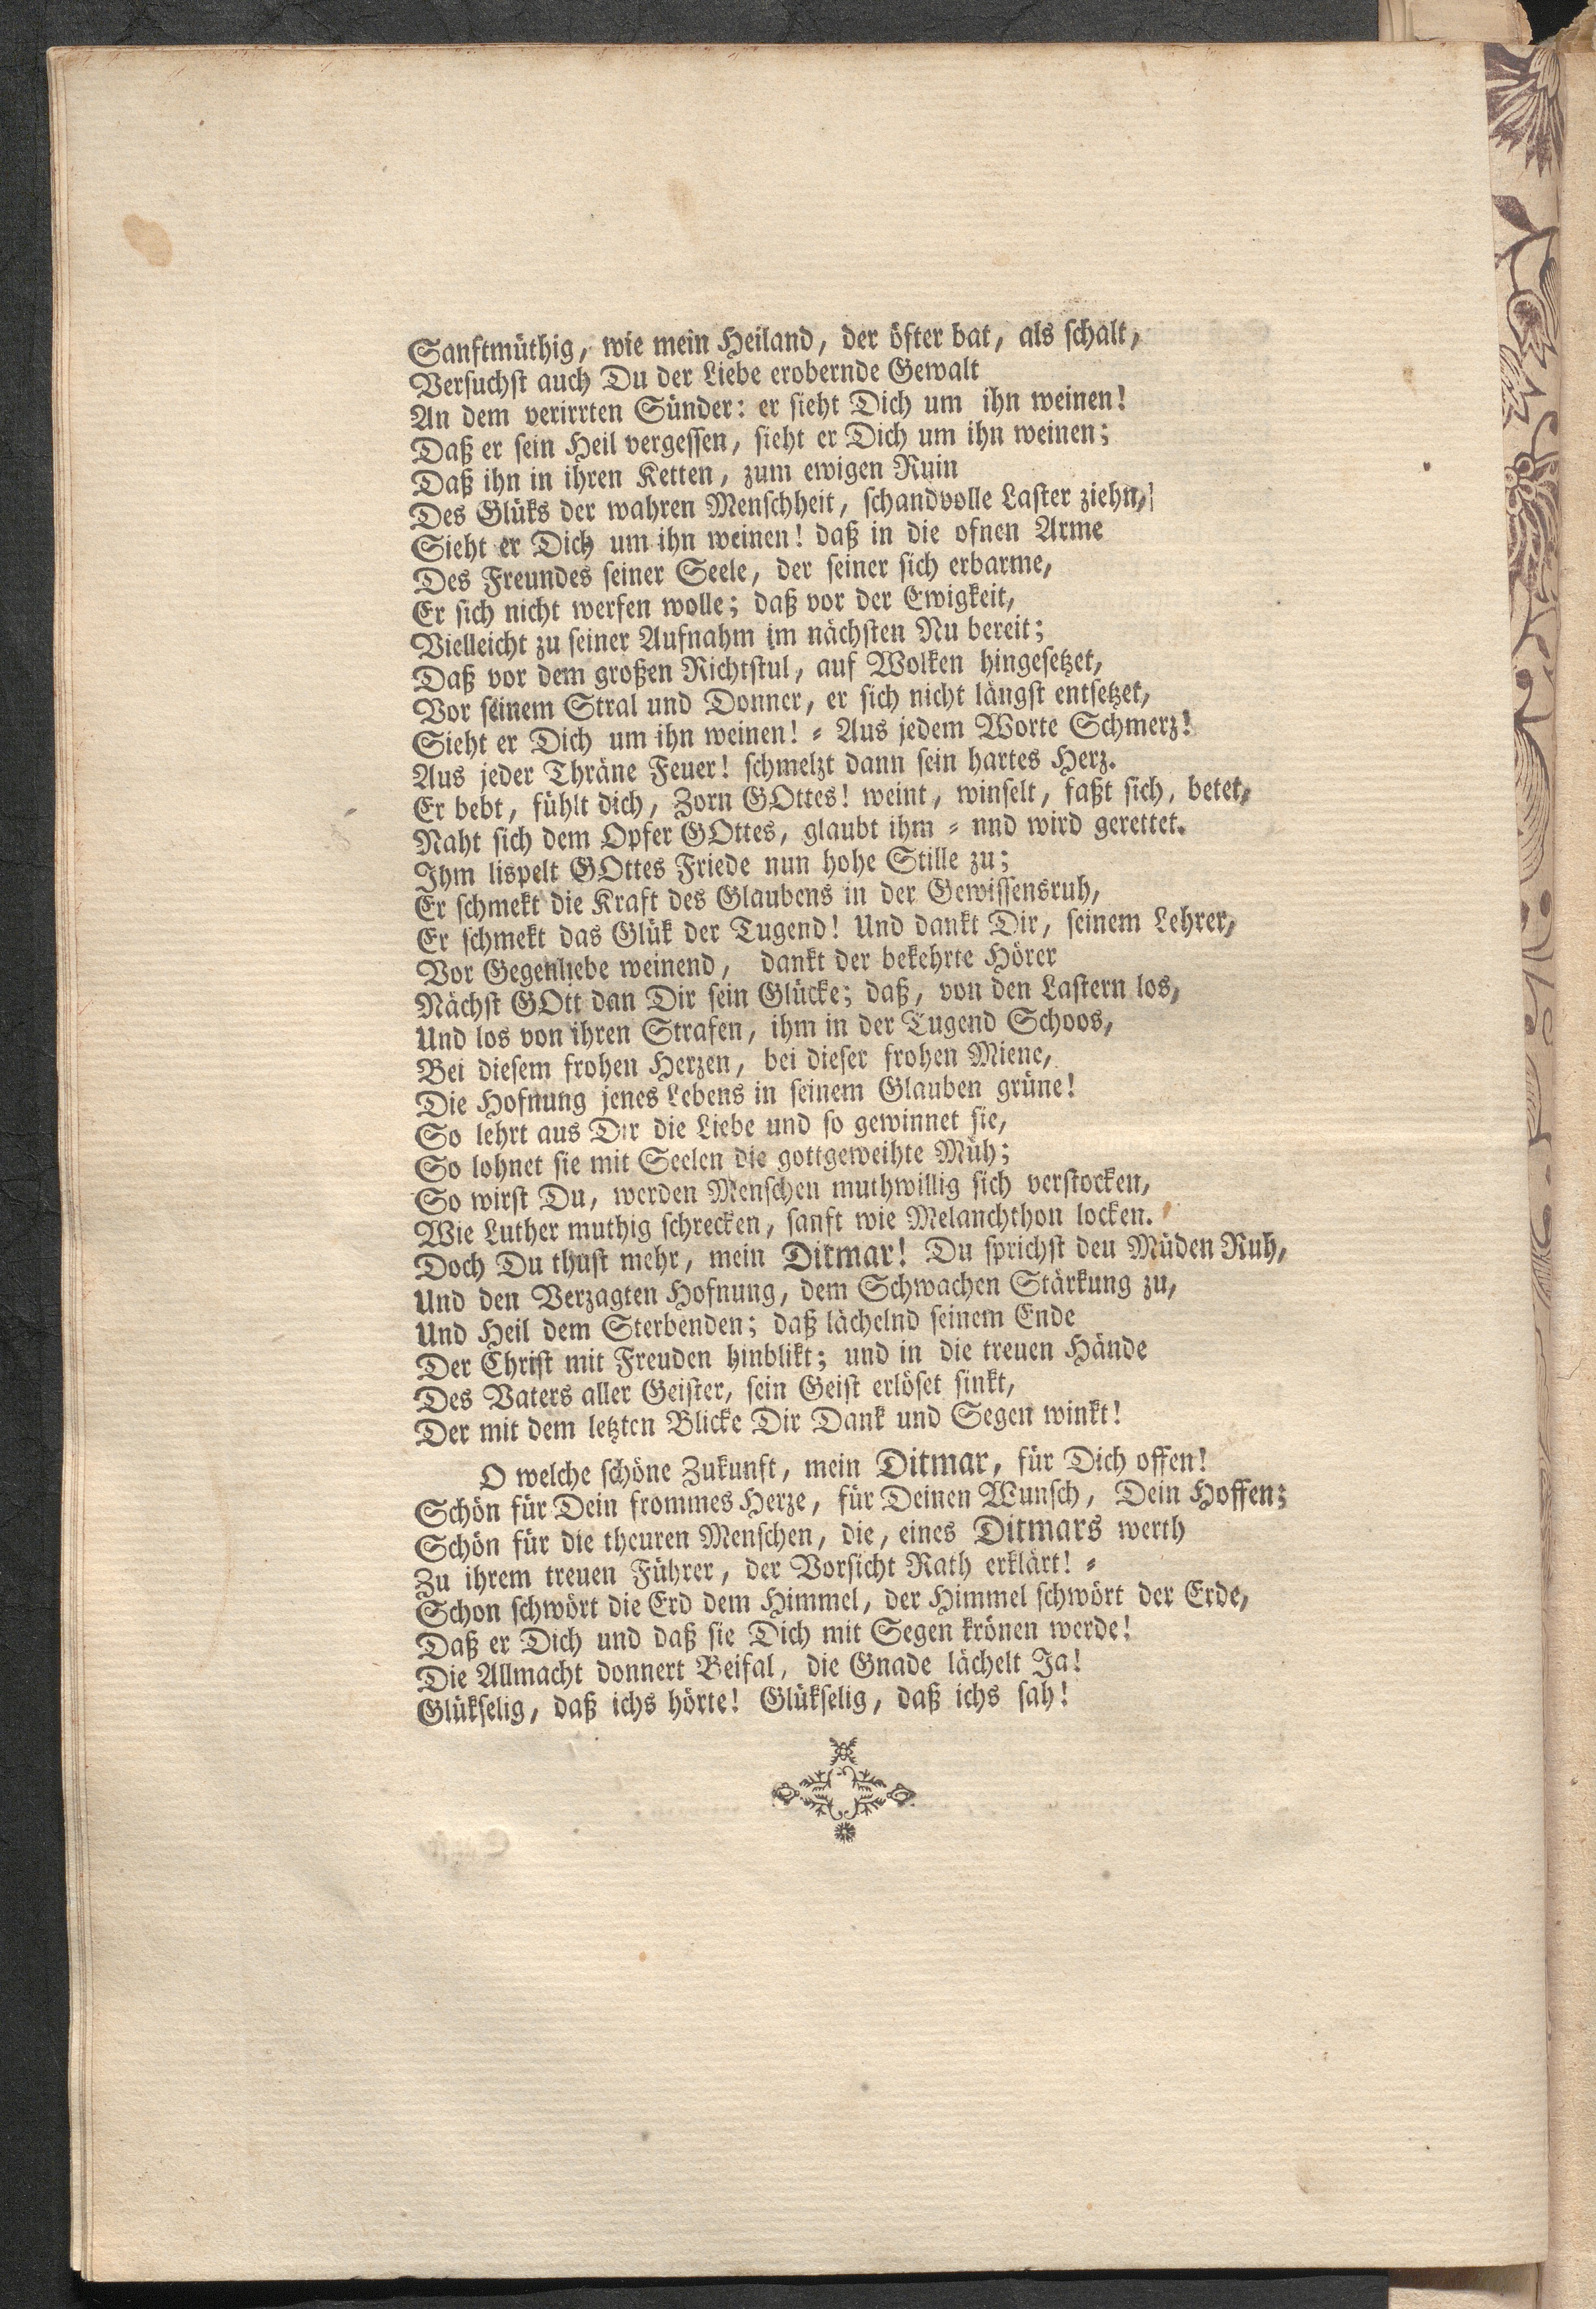 Sanftmüthig, wie mein Heiland, der öfter bat, als schalt,
Versuchst auch Du der Liebe erobernde Gewalt
An dem verirrten Sünder: er sieht Dich um ihn weinen!
Daß er sein Heil vergessen, sieht er Dich um ihn weinen;
Daß ihn in ihren Ketten, zum ewigen Ruin
Des Glüks der wahren Menschheit, schandvolle Laster ziehn,
Sieht er Dich um ihn weinen! daß in die ofnen Arme
Des Freundes seiner Seele, der seiner sich erbarme,
Er sich nicht werfen wolle; daß vor der Ewigkeit,
Vielleicht zu seiner Aufnahm im nächsten Nu bereit;
Daß vor dem großen Richtstul, auf Wolken hingesetzet,
Vor seinem Stral und Donner, er sich nicht längst entsetzet,
Sieht er Dich um ihn weinen! = Aus jedem Worte Schmerz!
Aus jeder Thräne Feuer! schmelzt dann sein hartes Herz.
Er bebt, fühlt dich, Zorn GOttes! weint, winselt, faßt sich, betet,
Naht sich dem Opfer GOttes, glaubt ihm = nnd wird gerettet.
Ihm lispelt GOttes Friede nun hohe Stille zu;
Er schmekt die Kraft des Glaubens in der Gewissensruh,
Er schmekt das Glük der Tugend! Und dankt Dir, seinem Lehrer,
Vor Gegenliebe weinend, dankt der bekehrte Hörer
Nächst GOtt dan Dir sein Glücke; daß, von den Lastern los,
Und los von ihren Strafen, ihm in der Tugend Schoos,
Bei diesem frohen Herzen, bei dieser frohen Miene,
Die Hofnung jenes Lebens in seinem Glauben grüne!
So lehrt aus Dir die Liebe und so gewinnet sie,
So lohnet sie mit Seelen die gottgeweihte Müh;
So wirst Du, werden Menschen muthwillig sich verstocken,
Wie Luther muthig schrecken, sanft wie Melanchthon locken.
Doch Du thust mehr, mein Ditmar! Du sprichst deu Müden Ruh,
Und den Verzagten Hofnung, dem Schwachen Stärkung zu,
Und Heil dem Sterbenden; daß lächelnd seinem Ende
Der Christ mit Freuden hinblikt; und in die treuen Hände
Des Vaters aller Geister, sein Geist erlöset sinkt,
Der mit dem letzten Blicke Dir Dank und Segen winkt!
O welche schöne Zukunft, mein Ditmar, für Dich offen!
Schön für Dein frommes Herze, für Deinen Wunsch, Dein Hoffen;
Schön für die theuren Menschen, die, eines Ditmars werth
Zu ihrem treuen Führer, der Vorsicht Rath erklärt! =
Schon schwört die Erd dem Himmel, der Himmel schwört der Erde,
Daß er Dich und daß sie Dich mit Segen krönen werde!
Die Allmacht donnert Beifal, die Gnade lächelt Ja!
Glükselig, daß ichs hörte! Glükselig, daß ichs sah!